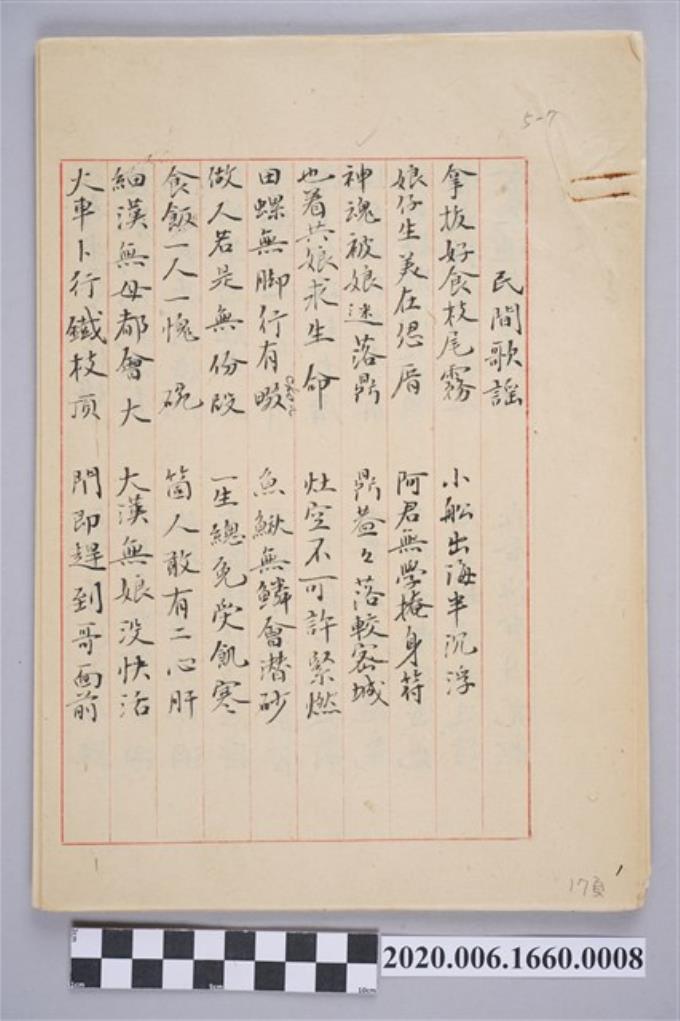 5-7
民間歌謡
拿拔好食枝尾霧 小船出海半沉浮
娘仔生美在恁厝 阿君無學掩身符
神魂被娘迷落鼎 鼎蓋々落較密城
也着共娘求生命 灶空不可許緊燃
田螺無脚行有畷 魚鰍無鱗會潜砂
做人若是無份段 一生總免受飢寒
食飯一人一塊碗 箇人敢有二心肝
細漢無母都會大 大漢無娘没快活
火車卜行鐵枝頂 閂即趕到哥面前
17頁
1
1
2020.006.1660.0008